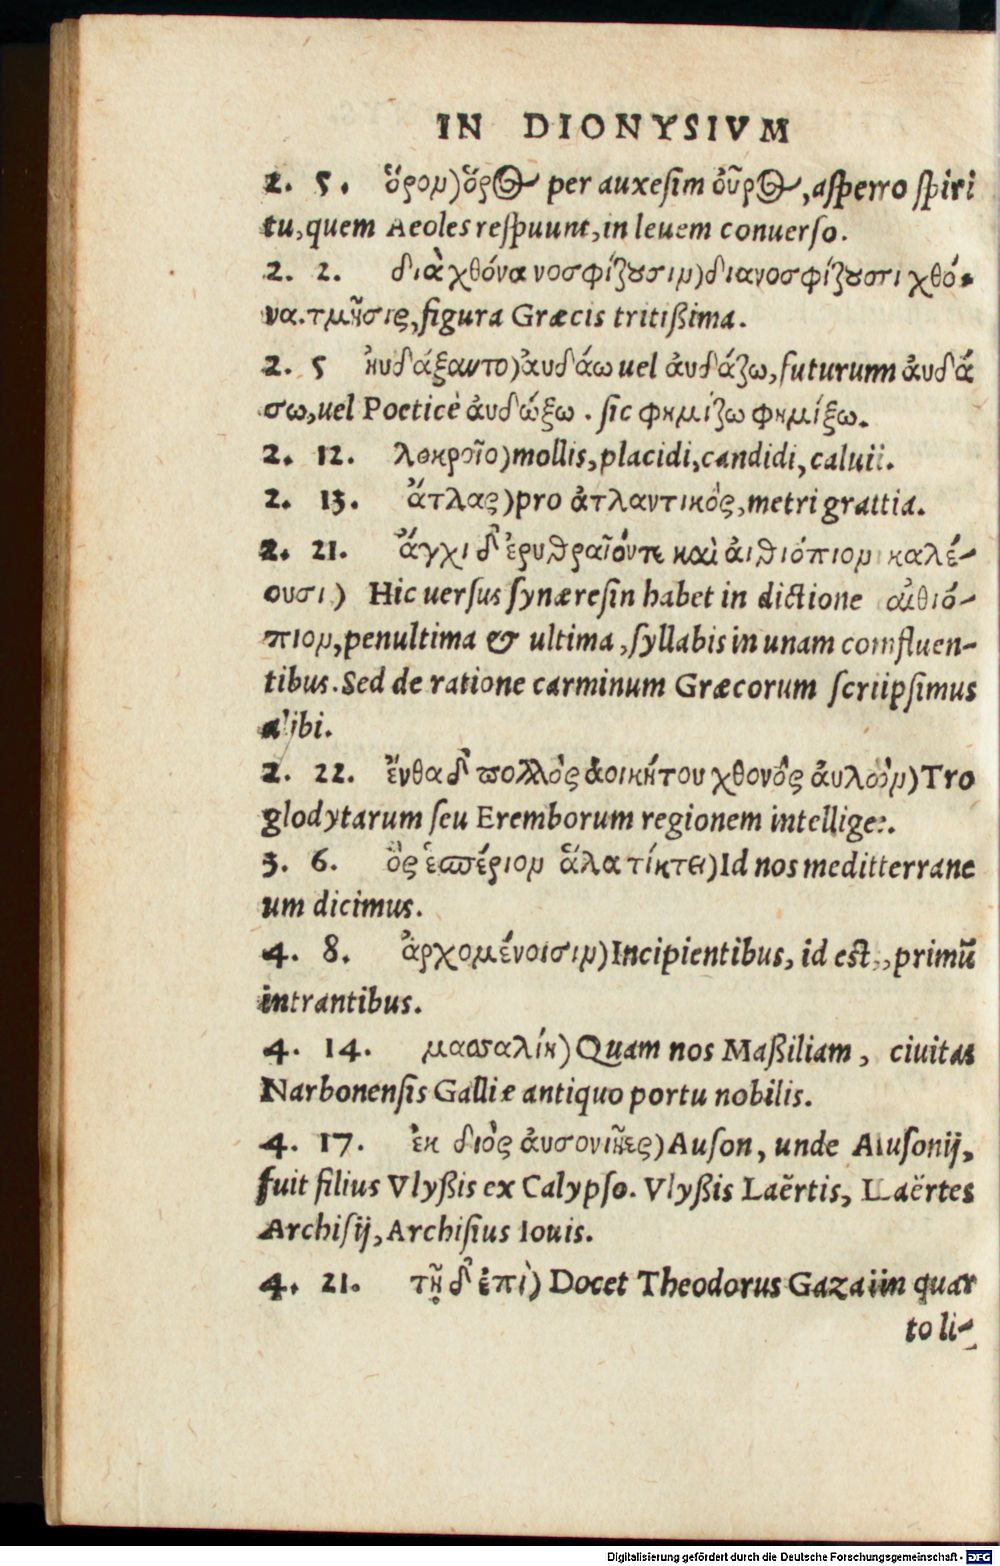 IN DIONYSIVM
2. 5. ὅρον)ὅρος per auxesim οὖρος, asperro spiri
tu, quem Aeoles respuunt, in leuem conuerso.
2. 2. διὰ χθόνα νοσφίζουσιν)διανοσφίζουσι χθό-
να. τμῆσις, figura Græcis tritißima.
2. 5 ηυδάξαντο)ἀυδάω uel ἀυδάζω, futurum ἀυδά
σω, uel Poeticè ἀυδώξω. sic φημίζω φημίξω.
2. 12. λοκροῖο)mollis, placidi, candidi, caluii.
2. 13. ἄτλας)pro ἀτλαντικὸς, metri grattia.
2. 21. ἄγχι δ' ἐρυθραῖόντε καὶ ἀιθιόπιον καλέ-
ουσι) Hic uersus synæresin habet in dictione αἰθιό-
πιον, penultima & ultima, syllabis in unam comfluen-
tibus. Sed de ratione carminum Græcorum scriipsimus
alibi.
2. 22. ἔνθα δ' πολλὸς ἀοικήτου χθονὸς ἀυλὼν)Tro
glodytarum seu Eremborum regionem intellige.
3. 6. ὃς ἑσπέριον ἅλα τίκτει)Id nos meditterrane
um dicimus.
4. 8. ἀρχομένοισιν)Incipientibus, id est, primū
intrantibus.
4. 14. μασσαλίη) Quam nos Maßiliam, ciuitas
Narbonensis Galliæ antiquo portu nobilis.
4. 17. ἐκ διὸς ἀυσονιῆες)Auson, unde Ausonij,
fuit filius Vlyßis ex Calypso. Vlyßis Laërtis, Laërtes
Archisij, Archisius Iouis.
4. 21. τῇ δ' ἐπὶ) Docet Theodorus Gaza iin quar
to li-
Digitalisierung gefördert durch die Deutsche Forschungsgemeinschaft - DFG